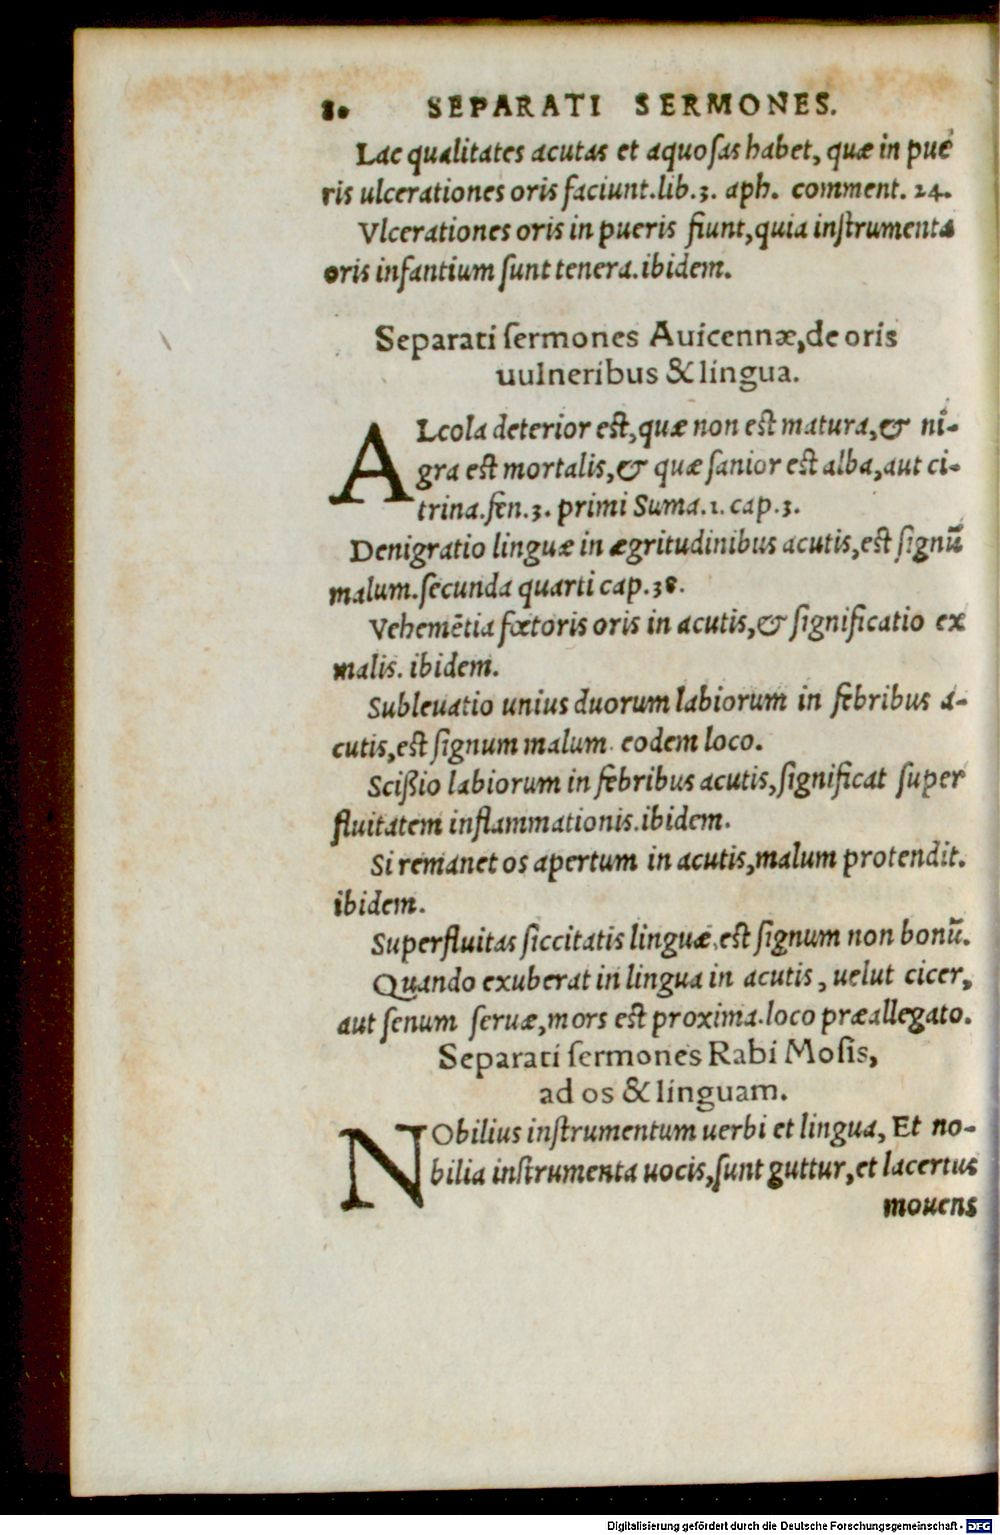 80 SEPARATI SERMONES.
Lac qualitates acutas et aquosas habet, quæ in pue
ris ulcerationes oris faciunt.lib.3. aph. comment. 24.
Vlcerationes oris in pueris fiunt,quia instrumenta
oris infantium sunt tenera.ibidem.
Separati sermones Auicennæ,de oris
uulneribus & lingua.
ALcola deterior est,quæ non est matura,& ni-
gra est mortalis,& quæ sanior est alba,aut ci-
trina.fen.3. primi Suma.1. cap.3.
Denigratio linguæ in ægritudinibus acutis,est signū
malum.secunda quarti cap.38.
Vehemētia fœtoris oris in acutis,& significatio ex
malis. ibidem.
Subleuatio unius duorum labiorum in febribus a-
cutis,est signum malum. eodem loco.
Scißio labiorum in febribus acutis,significat super
fluitatem inflammationis.ibidem.
Si remanet os apertum in acutis,malum protendit.
ibidem.
Superfluitas siccitatis linguæ,est signum non bonū.
Quando exuberat in lingua in acutis, uelut cicer,
aut senum seruæ,mors est proxima.loco præallegato.
Separati sermones Rabi Mosis,
ad os & linguam.
NObilius instrumentum uerbi et lingua, Et no-
bilia instrumenta uocis,sunt guttur,et lacertus
mouens
Digitalisierung gefördert durch die Deutsche Forschungsgemeinschaft - DFG